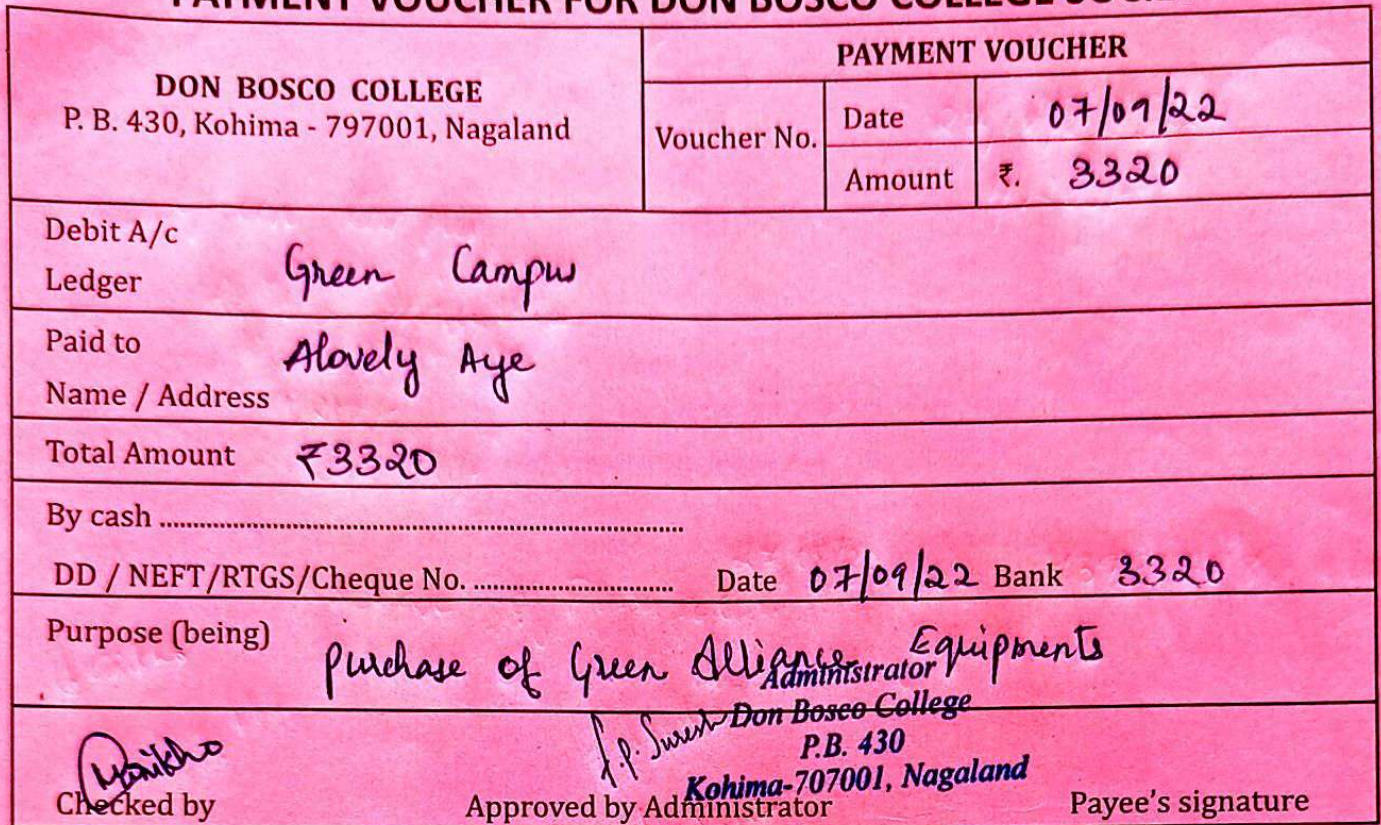 PAYMENT VOUCHER FOR DON BOSCO COLLEGE
DON BOSCO COLLEGE
P. B. 430, Kohima - 797001, Nagaland
PAYMENT VOUCHER
Voucher No.
Date 07/09/22
Amount ₹. 3320
Debit A/c
Ledger
Green Campus
Paid to
Name / Address
Alovely Aye
Total Amount ₹3320
By cash ..........
DD / NEFT/RTGS/Cheque No. .......... Date 07/09/22 Bank 3320
Purpose (being)
purchase of Green Alliance Equipments
Administrator
Don Bosco College
P.B. 430
Kohima-707001, Nagaland
Checked by
Approved by Administrator
Payee's signature